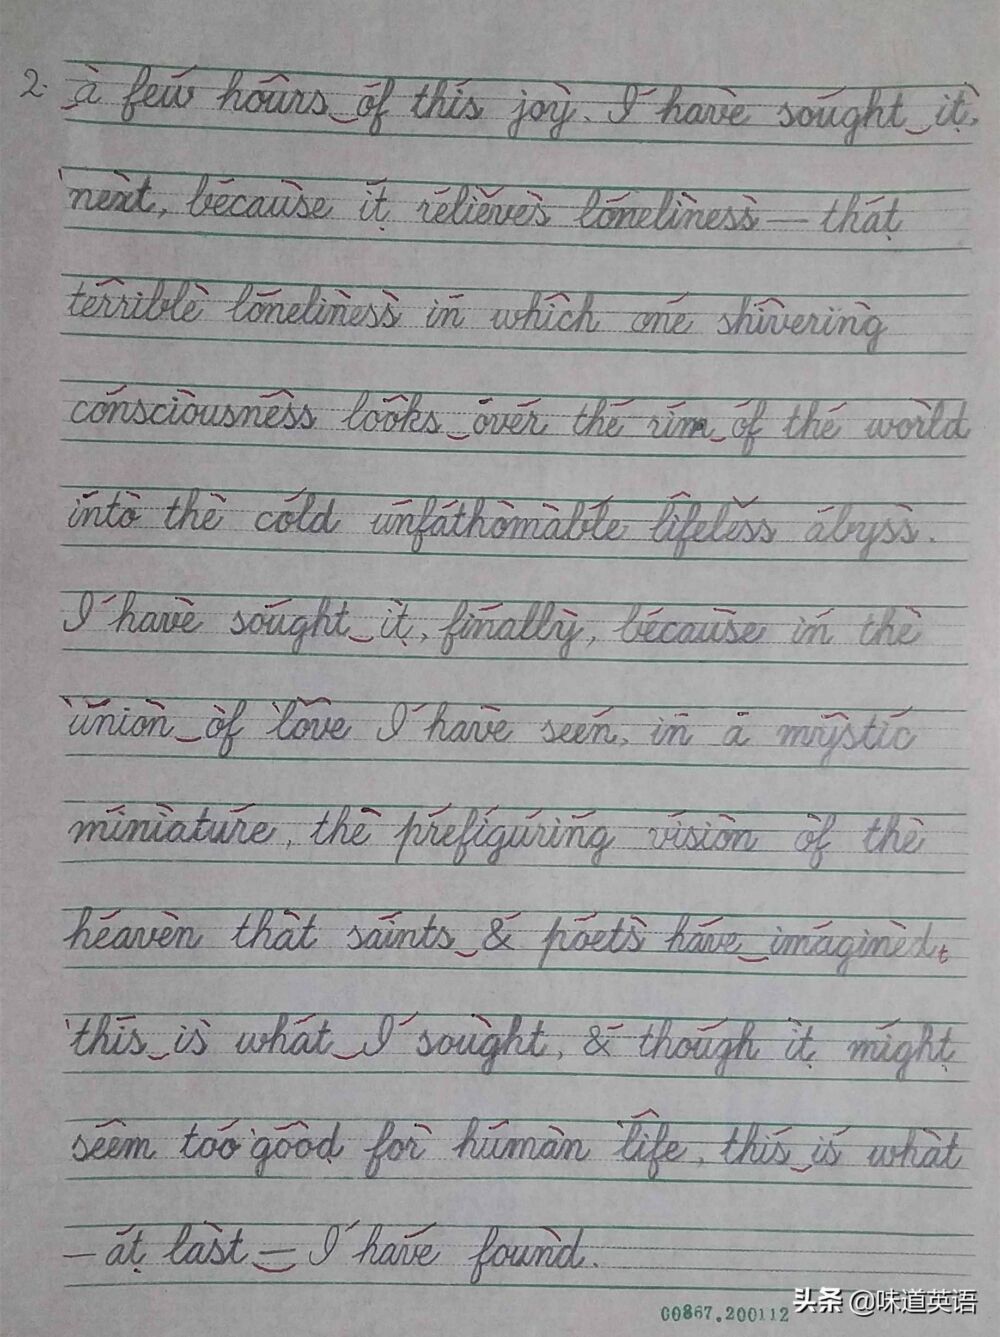 2. a few hours of this joy. I have sought it,
next, because it relieves loneliness — that
terrible loneliness in which one shivering
consciousness looks over the rim of the world
into the cold unfathomable lifeless abyss.
I have sought it, finally, because in the
union of love I have seen, in a mystic
miniature, the prefiguring vision of the
heaven that saints & poets have imagined.
this is what I sought, & though it might
seem too good for human life, this is what
— at last — I have found.
00867.200112
头条 @味道英语